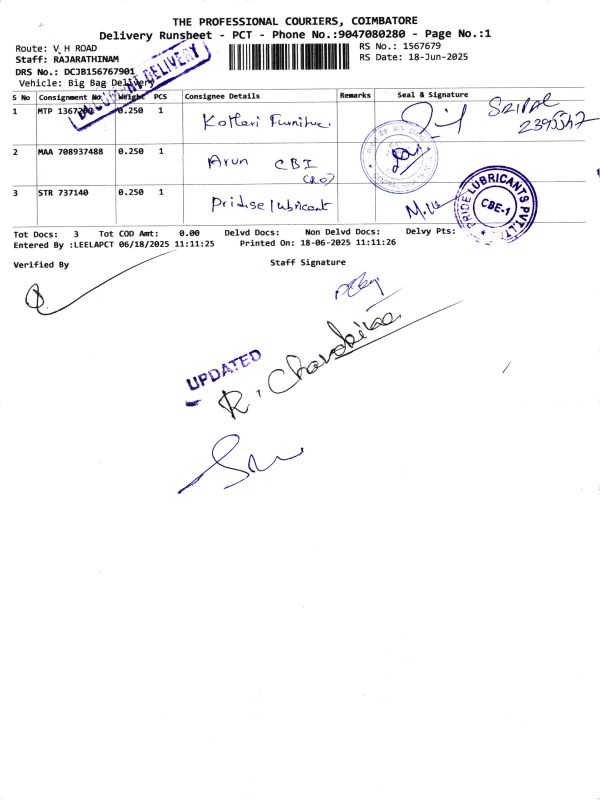 THE PROFESSIONAL COURIERS, COIMBATORE
Delivery Runsheet - PCT - Phone No.:9047080280 - Page No.:1
Route: V H ROAD
RS No.: 1567679
Staff: RAJARATHINAM
RS Date: 18-Jun-2025
DRS No.: DCJB156767901
Vehicle: Big Bag Delivery
DOCUMENT DELIVERY
S No Consignment No Weight PCS Consignee Details Remarks Seal & Signature
1 MTP 0.250 1 Kothari Furniture
2 MAA 708937488 0.250 1 Arun CBI
(RO)
3 STR 737140 0.250 1 lubricant
PRIDE LUBRICANTS PVT.LTD
CBE-1
Tot Docs: 3 Tot COD Amt: 0.00 Delvd Docs: Non Delvd Docs: Delvy Pts:
Entered By :LEELAPCT 06/18/2025 11:11:25 Printed On: 18-06-2025 11:11:26
Verified By Staff Signature
UPDATED